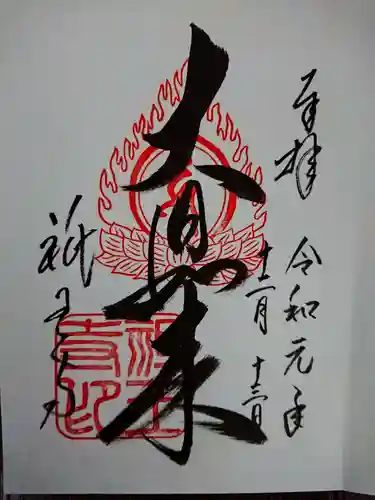 奉拝
令和元年
十二月十二日
大日如来
祇王寺
祇王寺印